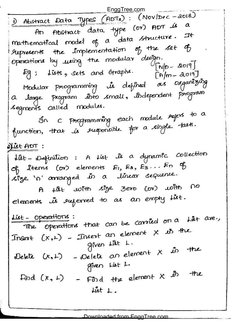 EnggTree.com
1) Abstract Data Types (ADTs) : (Nov/Dec - 2018)
An Abstract data type (or) ADT is a
mathematical model of a data structure. It
represents the implementation of the set of
operations by using the modular design.
Eg : List, Sets and Graphs. [A/M - 2019]
Modular programming is defined as organizing
a large program into small, independent program
segments called modules.
In C programming each module refers to a
function, that is responsible for a single task.
List ADT :
List - Definition : A List is a dynamic collection
of items (or) elements E1, E2, E3 ... En of
size 'n' arranged in a linear sequence.
A List with size zero (or) with no
elements is referred to as an empty list.
List - Operations :
The operations that can be carried on a list are,
Insert (X, L) - Insert an element X in the
given List L.
Delete (X, L) - Delete an element X in the
given List L.
Find (X, L) - Find the element X in the
List L.
Downloaded from EnggTree.com